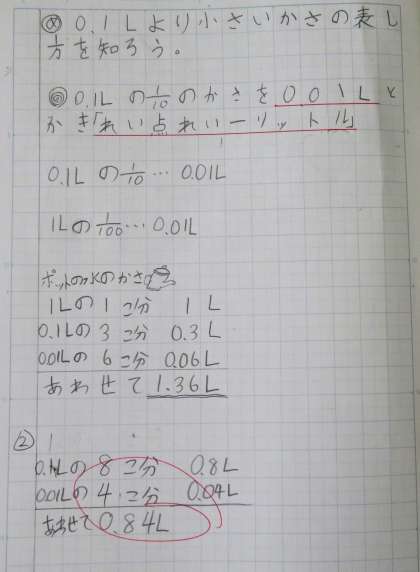 め 0.1Lより小さいかさの表し
方を知ろう。
◎0.1Lの1/10のかさを0.01Lと
かき「れい点れいーリットル」
0.1Lの1/10…0.01L
1Lの1/100…0.01L
ポットの水のかさ
1Lの1こ分 1L
0.1Lの3こ分 0.3L
0.01Lの6こ分 0.06L
あわせて1.36L
② 1
0.1Lの8こ分 0.8L
0.01Lの4こ分 0.04L
あわせて0.84L